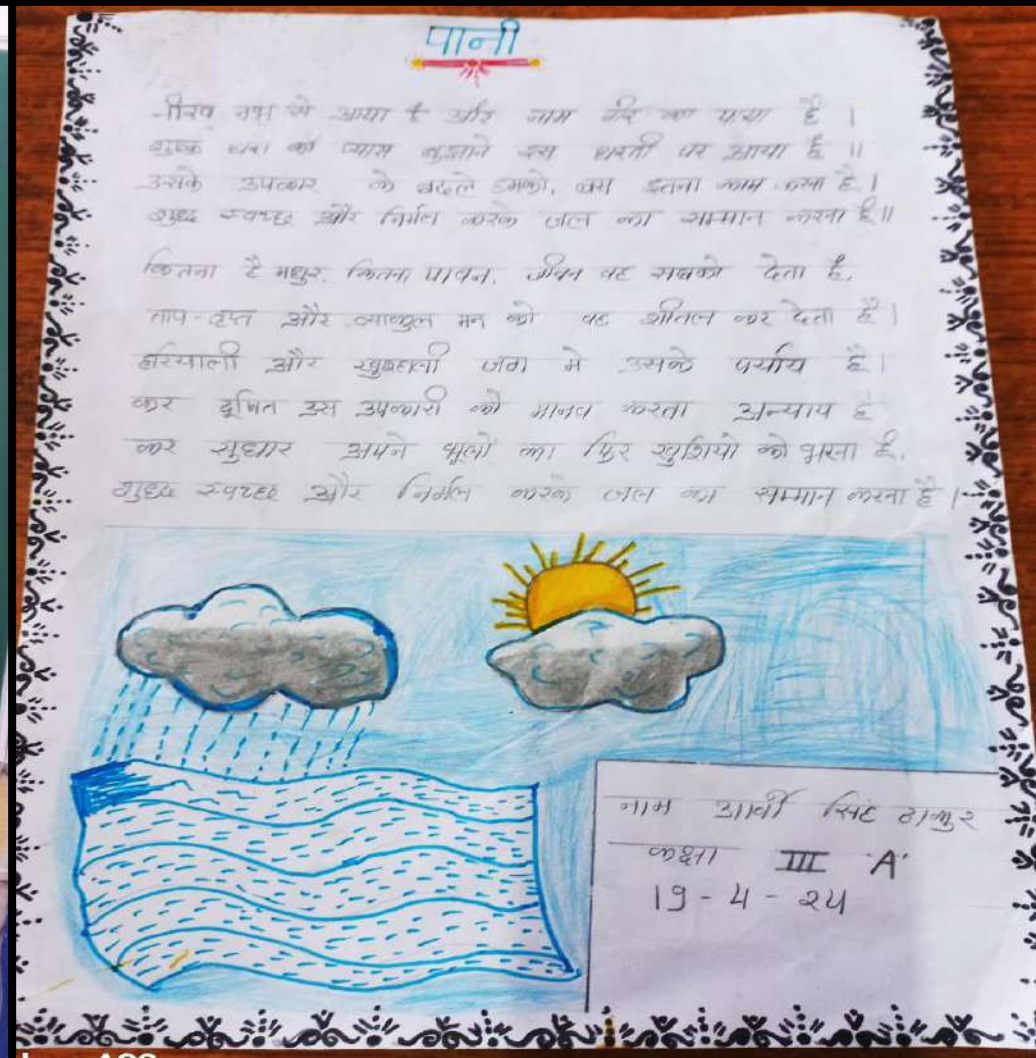 पानी
नीरव नभ से आया है और नाम नीर का पाया है ।
शुष्क धरा की प्यास बुझाने इस धरती पर आया है ॥
उसके उपकार के बदले हमको, बस इतना काम करना है ।
शुध्द स्वच्छ और निर्मल करके जल का सम्मान करना है ॥
कितना है मधुर, कितना पावन, जीवन वह सबको देता है,
ताप-तृप्त और व्याकुल मन को वह शीतल कर देता है ।
हरियाली और खुशहाली जग मे उसके पर्याय है ।
कर दूषित उस उपकारी को मानव करता अन्याय है
कर सुधार अपने भूलों का फिर खुशियो को भरना है,
शुध्द स्वच्छ और निर्मल करके जल का सम्मान करना है ।
नाम आर्वी सिंह ठाकुर
कक्षा III 'A'
19-4-24